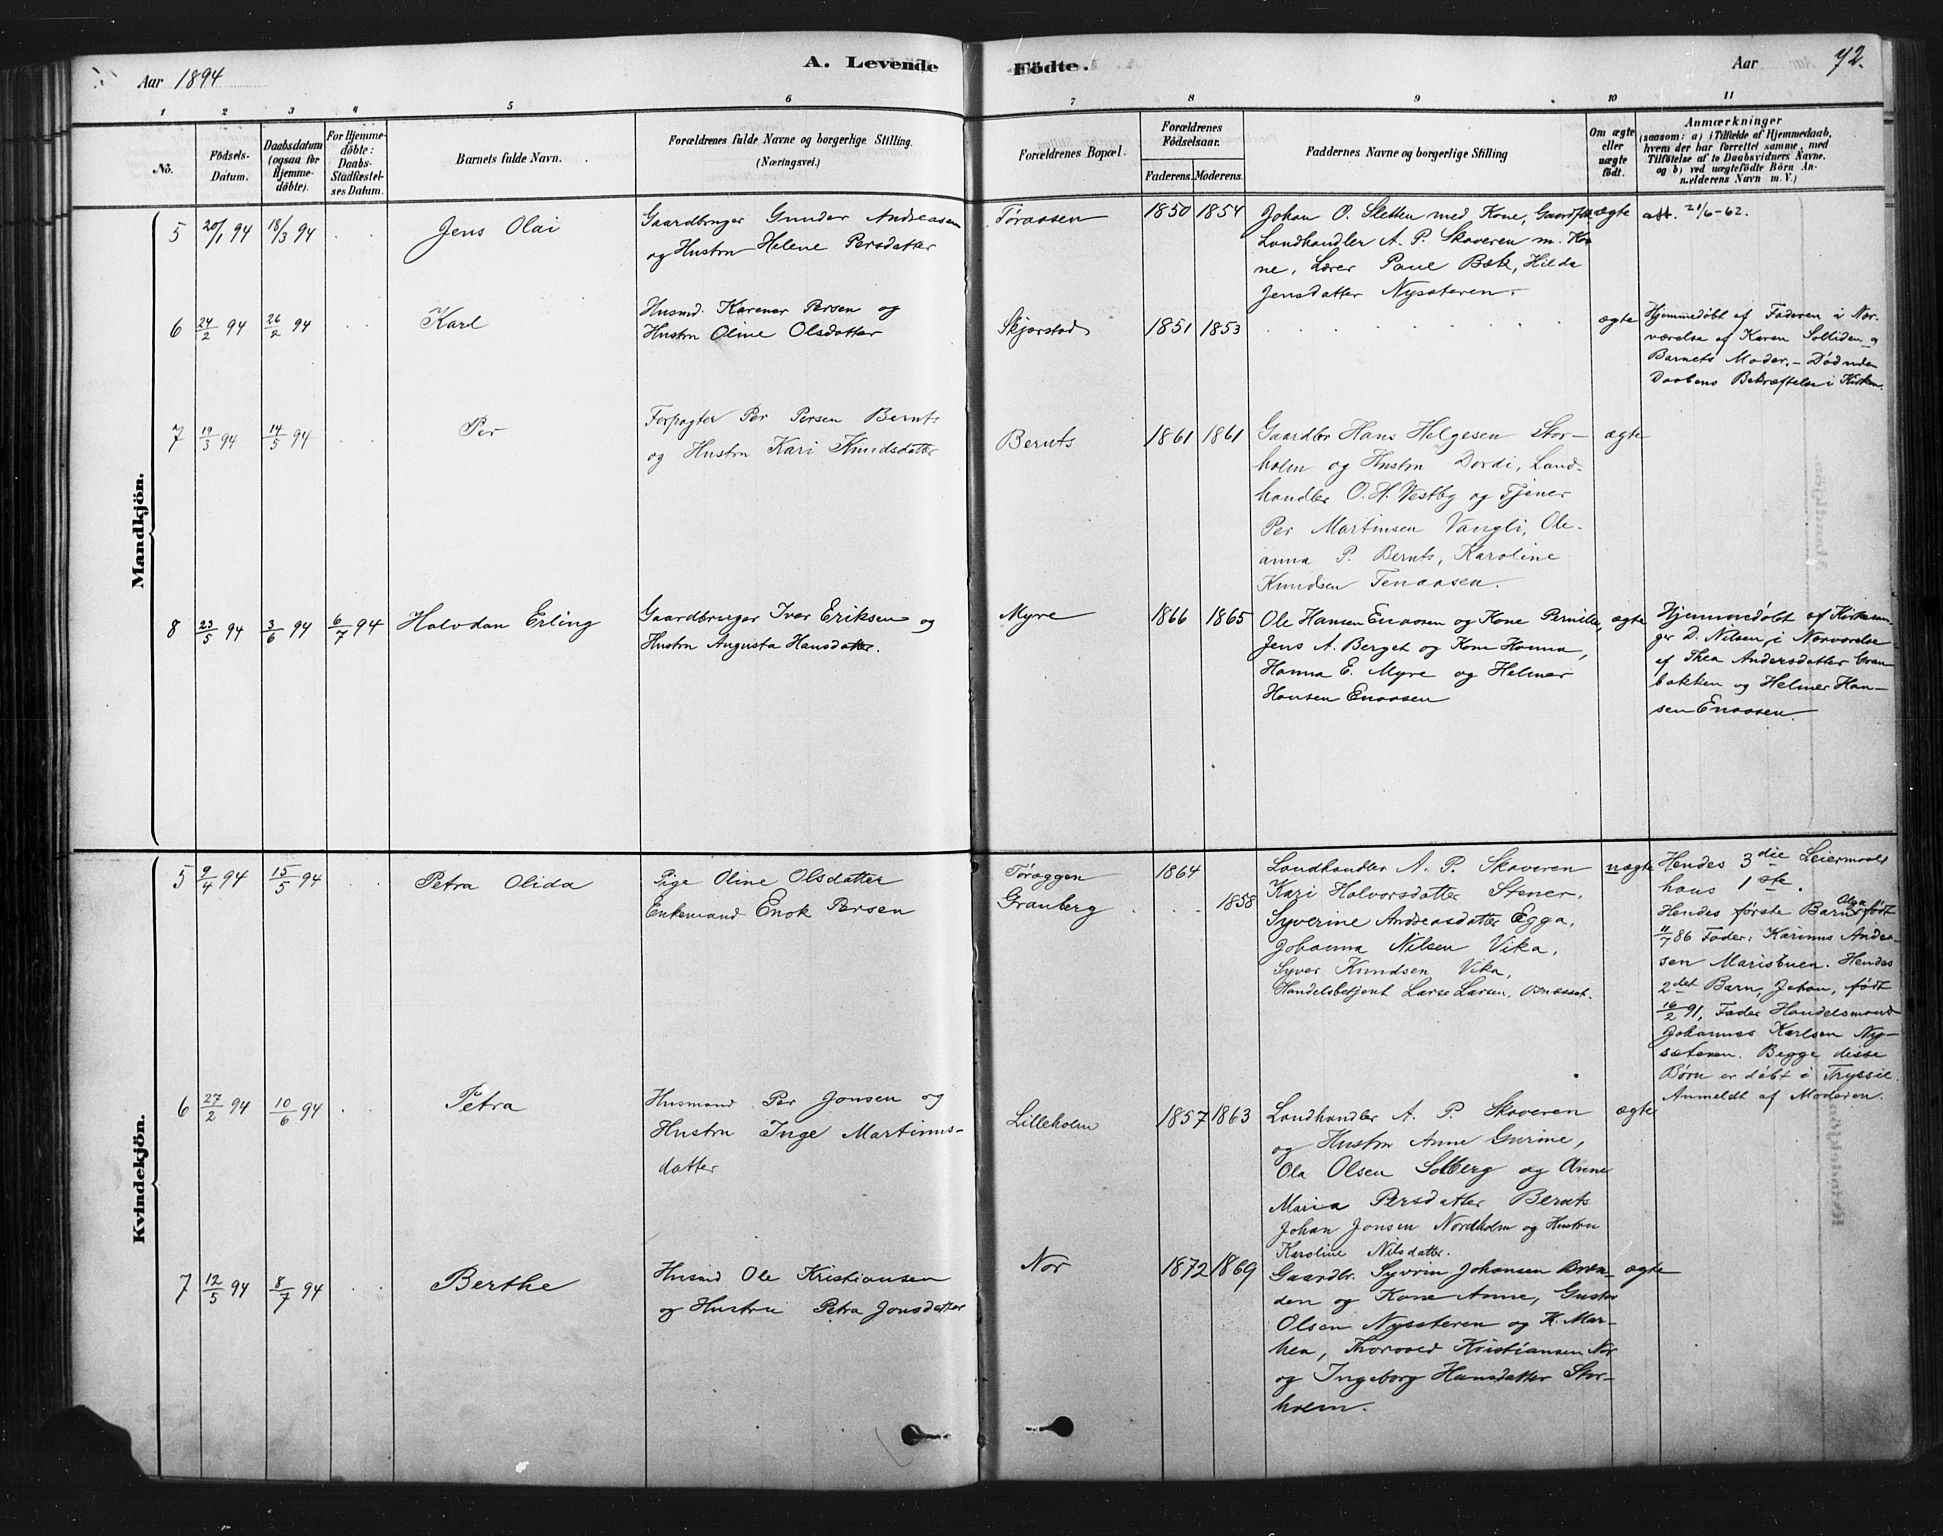 Aar 1894
A. Levende
Födte.
Aar
72.
1 2 3 4 5 6 7 8 9 10 11
No.
Födsels-
Datum.
Daabsdatum
(ogsaa for
Hjemme-
döbte).
For Hjemme-
döbte:
Daabs-
Stadfæstel-
ses Datum.
Barnets fulde Navn.
Forældrenes fulde Navne og borgerlige Stilling.
(Næringsvei.)
Forældrenes Bopæl.
Forældrenes
Födselsaar.
Faderens. Moderens.
Faddernes Navne og borgerlige Stilling
Om ægte
eller
uægte
födt.
Anmærkninger
(saasom: a) i Tilfælde af Hjemmedaab,
hvem der har forrettet samme, med
Tilföielse af to Daabsvidners Navne.
og b) ved uægtefödte Börn An-
melderens Navn m. V.)
Mandkjön.
5 20/1 94 18/3 94
Jens Olai
Gaardbruger Gunder Andreassen
og Hustru Helene Persdatter
Töraasen
1850 1854
Johan O. Sletten med Kone,
Landhandler A. P. Skaveren m. Ko-
ne, Lærer Paul Bæk, Hilda
Jensdatter Nysæteren.
ægte
att. 21/6-62.
6 24/2 94 26/2 94
Karl
Husmd. Karenus Persen og
Hustru Oline Olsdatter
Skjærstad
1851 1853
ægte
Hjemmedöbt af Faderen i Nær-
værelse af Karen Solliden og
Barnets Moder. – Död uden
Daabens Bekræftelse i Kirken.
7 19/3 94 14/5 94
Per
Forpagter Per Persen Bernts
og Hustru Kari Knudsdatter
Bernts
1861 1861
Gaardbr Hans Helgesen Stor-
holm og Hustru Dordi, Land-
handler O. H. Vestby og Tjener
Per Martinsen Vangli, Ole-
anna P. Bernts, Karoline
Knudsen Tenaasen.
ægte
8 23/5 94 3/6 94 6/7 94
Halvdan Erling
Gaardbruger Iver Eriksen og
Hustru Augusta Hansdatter.
Myre
1866 1865
Ole Hansen Enaasen og Kone Pernille,
Jens A. Berget og Kone Hanna,
Hanna E. Myre og Helmer
Hansen Enaasen
ægte
Hjemmedöbt af Kirkesan-
ger D. Nilsen i Nærværelse
af Thea Andersdatter Gran-
bakken og Helmer Han-
sen Enaasen.
Kvindekjön.
5 9/4 94 15/5 94
Petra Olida
Pige Oline Olsdatter
Enkemand Enok Persen
Töræggen
Granberg
1864
1858
Landhandler A. P. Skaveren
Kari Halvorsdatter Stener.
Syverine Andreasdatter Egga,
Johanna Nilsen Vika,
Syver Knudsen Vika,
Handelsbetjent Lars Larsen,
uægte
Hendes 3die Leiermaal
hans 1ste.
Hendes förste Barn Olga födt
11/7 86 Fader: Karinus Ander-
sen Marisbuen. Hendes
2det Barn, Johan, födt
16/2 91, Fader Handelsmand
Johannes Karlsen Ny-
sæteren. Begge disse
Börn er döbt i Trysil.
Anmeldt af Moderen.
6 27/2 94 10/6 94
Petra
Husmand Per Jonsen og
Hustru Inge Martinus-
datter
Lilleholm
1857 1863
Landhandler A. P. Skaveren
og Hustru Anne Gurine,
Ola Olsen Solberg og Anne
Maria Persdatter Bernts
Johan Jonsen Nordholm og Hustru
Karoline Nilsdatter.
ægte
7 12/5 94 8/7 94
Berthe
Husmd Ole Kristiansen
og Hustru Petra Jonsdatter
Nor
1872 1869
Gaardbr. Syvrin Johansen Bræn-
den og Kone Anne, Gustav
Olsen Nysæteren og K. Mar-
then, Thorvald Kristiansen Nor
og Ingeborg Hansdatter Stor-
holm.
ægte